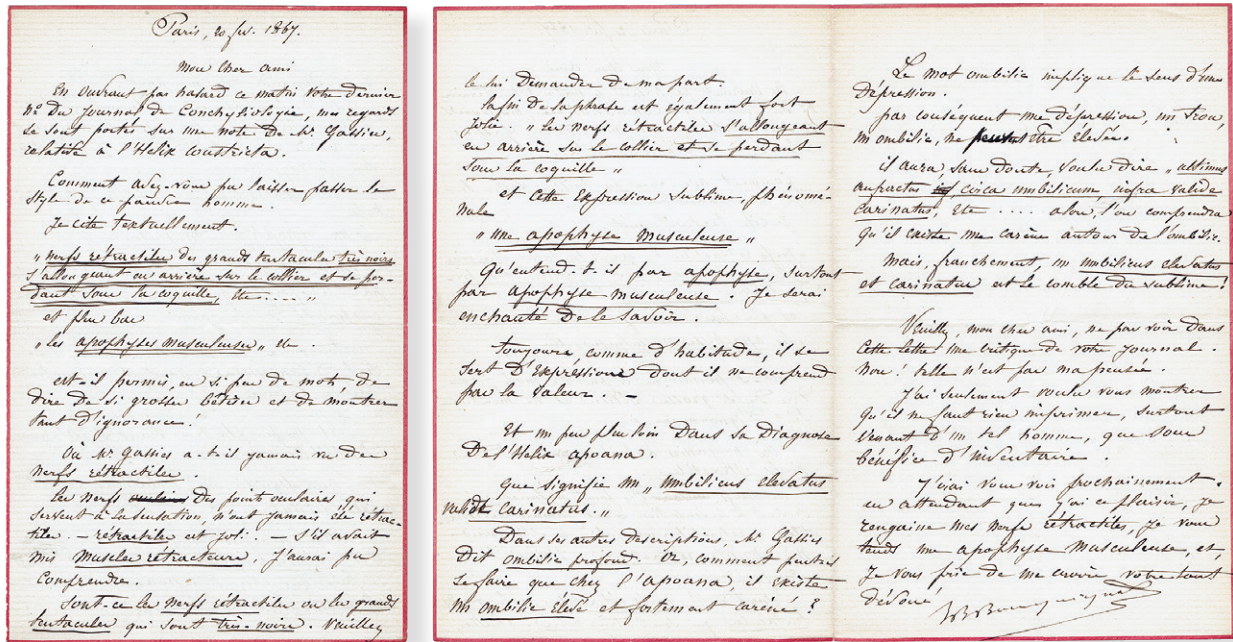 Paris, 20 fév. 1867.
Mon cher ami
En ouvrant par hasard ce matin votre dernier
n° du Journal de Conchyliologie, mes regards
se sont portés sur une note de Mr. Gassies,
relative à l'Helix constricta.
Comment avez-vous pu laisser passer le
style de ce pauvre homme.
Je cite textuellement.
„ nerfs rétractiles des grands tentacules très noirs
s'allongeant en arrière sur le collier et se per-
dant sous la coquille, etc .... „
et plus bas
„ les apophyses musculeuses „ etc.
est-il permis, en si peu de mots, de
dire de si grosses bêtises et de montrer
tant d'ignorance!
Où Mr Gassies a-t-il jamais vu des
nerfs rétractiles.
Les nerfs des points oculaires qui
servent à la sensation, n'ont jamais été rétrac-
tiles. — rétractiles est joli. — S'il avait
mis muscles rétracteurs, j'aurais pu
comprendre.
Sont-ce les nerfs rétractiles ou les grands
tentacules qui sont très-noirs. Veuillez
le lui demander de ma part.
La fin de la phrase est également fort
jolie. „ Les nerfs rétractiles s'allongeant
en arrière sur le collier et se perdant
sous la coquille „
et cette expression sublime, phénomé-
nale
„ une apophyse musculeuse „
Qu'entend-t-il par apophyse, surtout
par apophyse musculeuse. Je serai
enchanté de le savoir.
Toujours, comme d'habitude, il se
sert d'expressions dont il ne comprend
pas la valeur. —
Et un peu plus loin dans sa diagnose
de l'Helix apoana.
que signifie un „ umbilicus elevatus
validè carinatus. „
Dans ses autres descriptions, Mr Gassies
dit ombilic profond. Or, comment peut-il
se faire que chez l'apoana, il existe
un ombilic élevé et fortement caréné?
Le mot ombilic implique le sens d'une
dépression.
par conséquent une dépression, un trou,
un ombilic, ne peut être élevé.
il aura, sans doute, voulu dire „ ultimus
anfractus circa umbilicum infra valide
carinatus, etc .... alors, l'on comprendra
qu'il existe une carène autour de l'ombilic.
Mais, franchement, un umbilicus elevatus
et carinatus est le comble du sublime!
Veuillez, mon cher ami, ne pas voir dans
cette lettre une critique de votre journal.
Non! telle n'est pas ma pensée.
J'ai seulement voulu vous montrer
qu'il ne faut rien imprimer, surtout
venant d'un tel homme, que sous
bénéfice d'inventaire.
J'irai vous voir prochainement.
en attendant que j'ai ce plaisir, je
rengaine mes nerfs rétractiles, je vous
tends une apophyse musculeuse, et,
je vous prie de me croire, votre tout
dévoué
JR Bourguignat